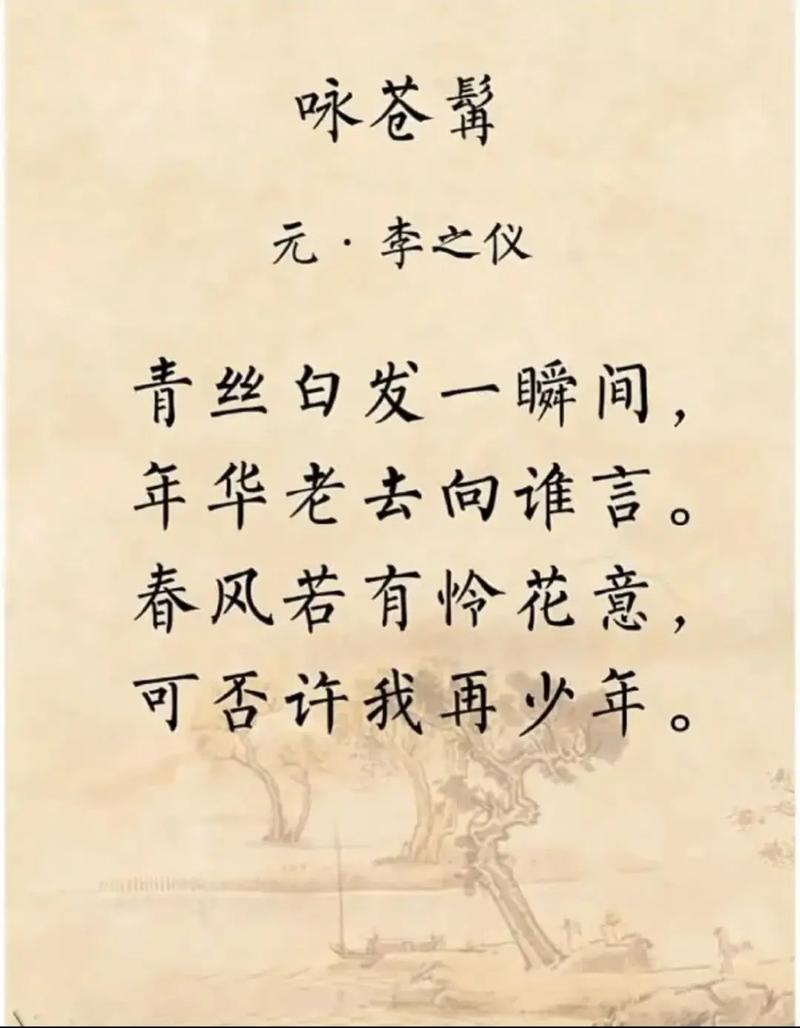 咏苍髯
元·李之仪
青丝白发一瞬间，
年华老去向谁言。
春风若有怜花意，
可否许我再少年。